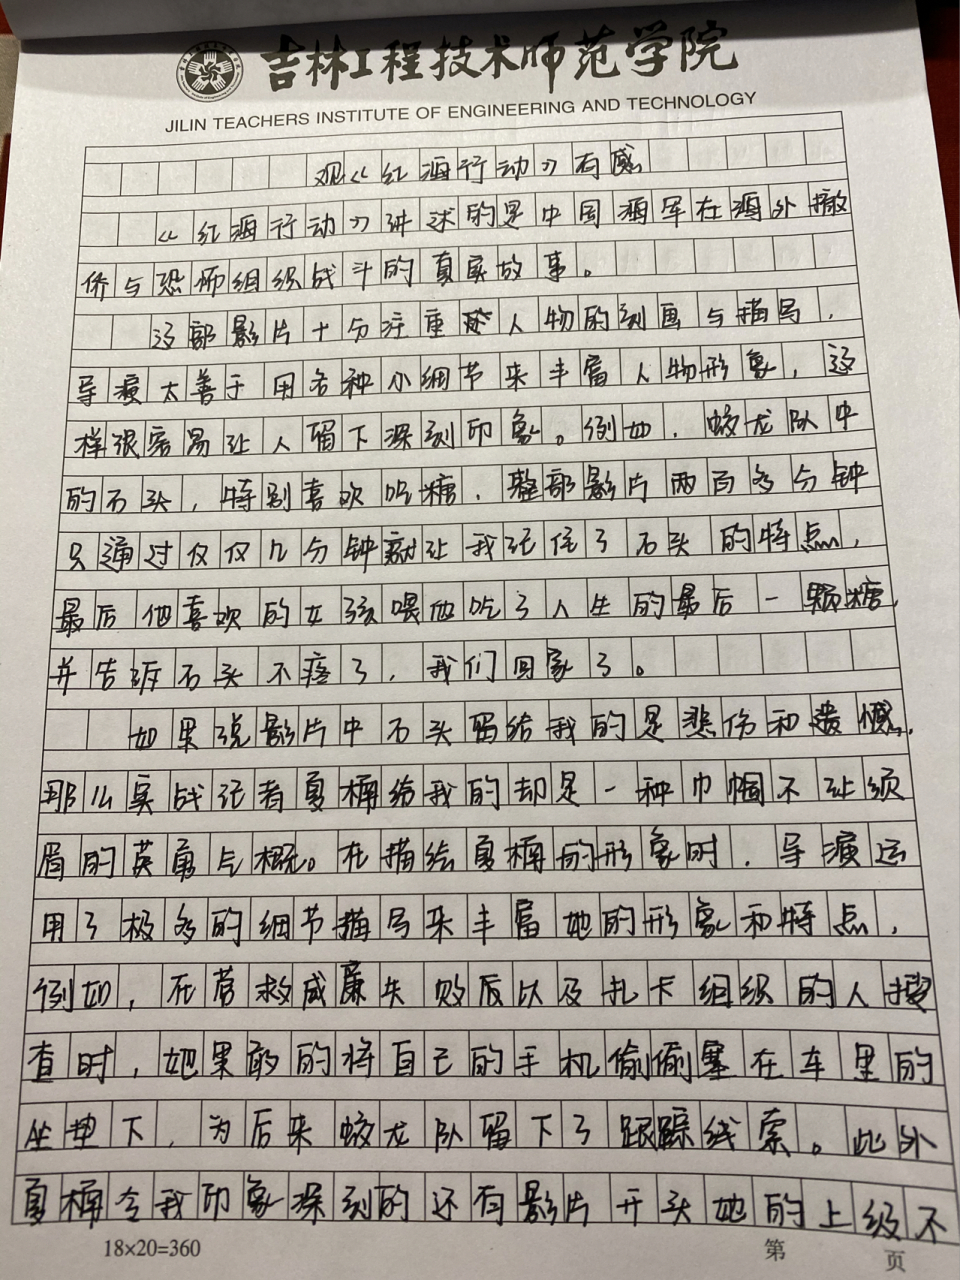 吉林工程技术师范学院
JILIN TEACHERS INSTITUTE OF ENGINEERING AND TECHNOLOGY
观《红海行动》有感
《红海行动》讲述的是中国海军在海外撤
侨与恐怖组织战斗的真实故事。
这部影片十分注重 人物的刻画与描写，
导演太善于用各种小细节来丰富人物形象，这
样很容易让人留下深刻印象。例如，蛟龙队中
的石头，特别喜欢吃糖，整部影片两百多分钟
只通过仅仅几分钟就让我记住了石头的特点，
最后他喜欢的女孩喂他吃了人生的最后一颗糖
并告诉石头不疼了，我们回家了。
如果说影片中石头留给我的是悲伤和遗憾，
那么实战记者夏楠给我的却是一种巾帼不让须
眉的英勇气概。在描绘夏楠的形象时，导演运
用了极多的细节描写来丰富她的形象和特点，
例如，在营救威廉失败后以及扎卡组织的人搜
查时，她果敢的将自己的手机偷偷塞在车里的
坐垫下，为后来蛟龙队留下了跟踪线索。此外
夏楠令我印象深刻的还有影片开头她的上级不
18×20=360
第 页